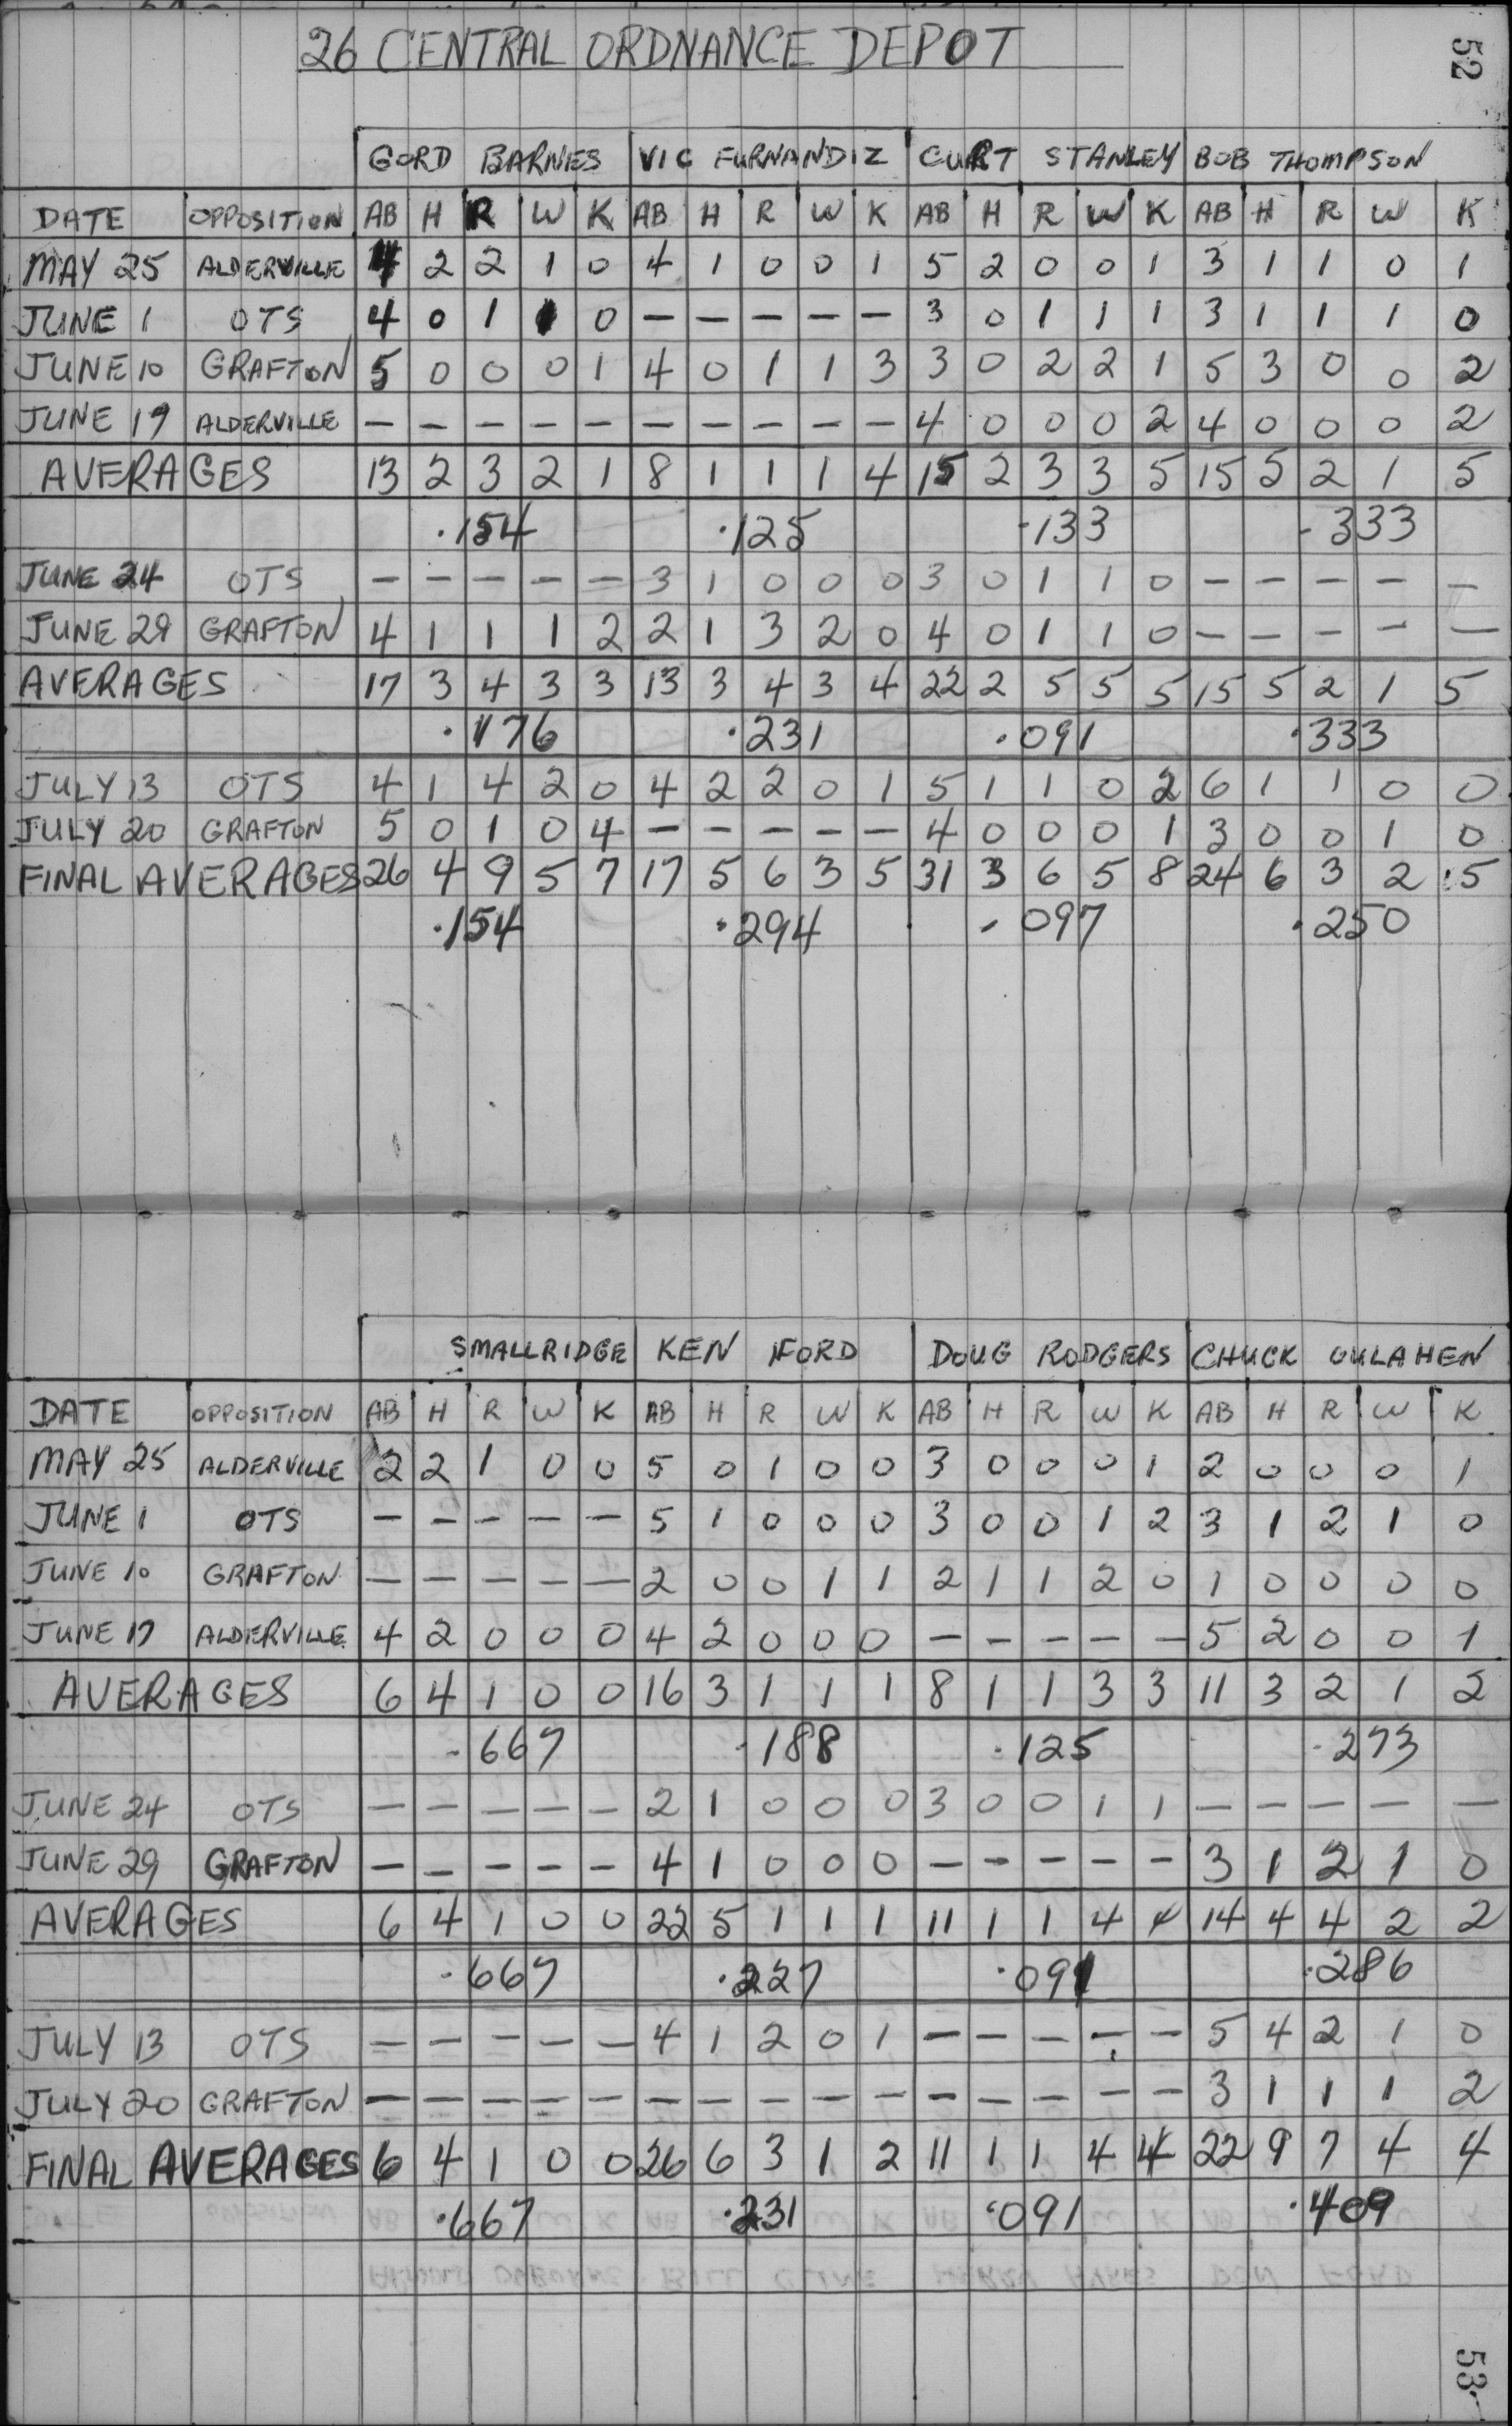 26 CENTRAL ORDNANCE DEPOT
52
GORD BARNES VIC FURNANDIZ CURT STANLEY BOB THOMPSON
DATE OPPOSITION AB H R W K AB H R W K AB H R W K AB H R W K
MAY 25 ALDERVILLE 4 2 2 1 0 4 1 0 0 1 5 2 0 0 1 3 1 1 0 1
JUNE 1 OTS 4 0 1 1 0 — — — — — 3 0 1 1 1 3 1 1 1 0
JUNE 10 GRAFTON 5 0 0 0 1 4 0 1 1 3 3 0 2 2 1 5 3 0 0 2
JUNE 19 ALDERVILLE — — — — — — — — — — 4 0 0 0 2 4 0 0 0 2
AVERAGES 13 2 3 2 1 8 1 1 1 4 15 2 3 3 5 15 5 2 1 5
.154 .125 .133 .333
JUNE 24 OTS — — — — — 3 1 0 0 0 3 0 1 1 0 — — — — —
JUNE 29 GRAFTON 4 1 1 1 2 2 1 3 2 0 4 0 1 1 0 — — — — —
AVERAGES 17 3 4 3 3 13 3 4 3 4 22 2 5 5 5 15 5 2 1 5
.176 .231 .091 .333
JULY 13 OTS 4 1 4 2 0 4 2 2 0 1 5 1 1 0 2 6 1 1 0 0
JULY 20 GRAFTON 5 0 1 0 4 — — — — — 4 0 0 0 1 3 0 0 1 0
FINAL AVERAGES 26 4 9 5 7 17 5 6 3 5 31 3 6 5 8 24 6 3 2 5
.154 .294 .097 .250
SMALLRIDGE KEN FORD DOUG RODGERS CHUCK OULAHEN
DATE OPPOSITION AB H R W K AB H R W K AB H R W K AB H R W K
MAY 25 ALDERVILLE 2 2 1 0 0 5 0 1 0 0 3 0 0 0 1 2 0 0 0 1
JUNE 1 OTS — — — — — 5 1 0 0 0 3 0 0 1 2 3 1 2 1 0
JUNE 10 GRAFTON — — — — — 2 0 0 1 1 2 1 1 2 0 1 0 0 0 0
JUNE 17 ALDERVILLE 4 2 0 0 0 4 2 0 0 0 — — — — — 5 2 0 0 1
AVERAGES 6 4 1 0 0 16 3 1 1 1 8 1 1 3 3 11 3 2 1 2
.667 .188 .125 .273
JUNE 24 OTS — — — — — 2 1 0 0 0 3 0 0 1 1 — — — — —
JUNE 29 GRAFTON — — — — — 4 1 0 0 0 — — — — — 3 1 2 1 0
AVERAGES 6 4 1 0 0 22 5 1 1 1 11 1 1 4 4 14 4 4 2 2
.667 .227 .091 .286
JULY 13 OTS — — — — — 4 1 2 0 1 — — — — — 5 4 2 1 0
JULY 20 GRAFTON — — — — — — — — — — — — — — — 3 1 1 1 2
FINAL AVERAGES 6 4 1 0 0 26 6 3 1 2 11 1 1 4 4 22 9 7 4 4
.667 .231 .091 .409
53